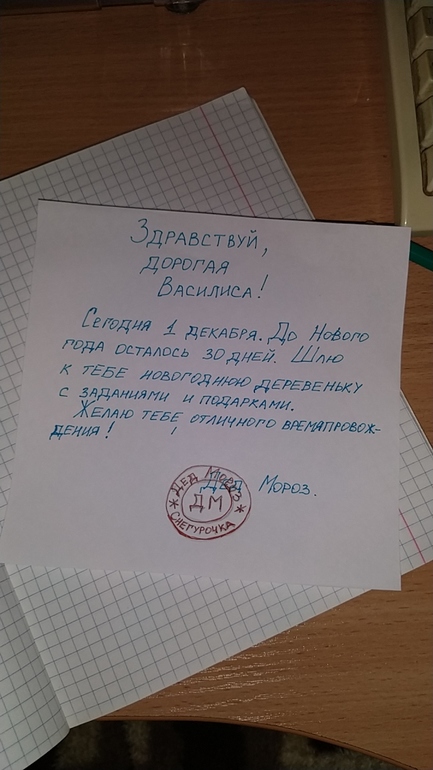 Здравствуй,
дорогая
Василиса!
Сегодня 1 декабря. До Нового
года осталось 30 дней. Шлю
к тебе новогоднюю деревеньку
с заданиями и подарками.
Желаю тебе отличного времяпровож-
дения!
Дед Мороз.
Дед Мороз
ДМ
* Снегурочка *